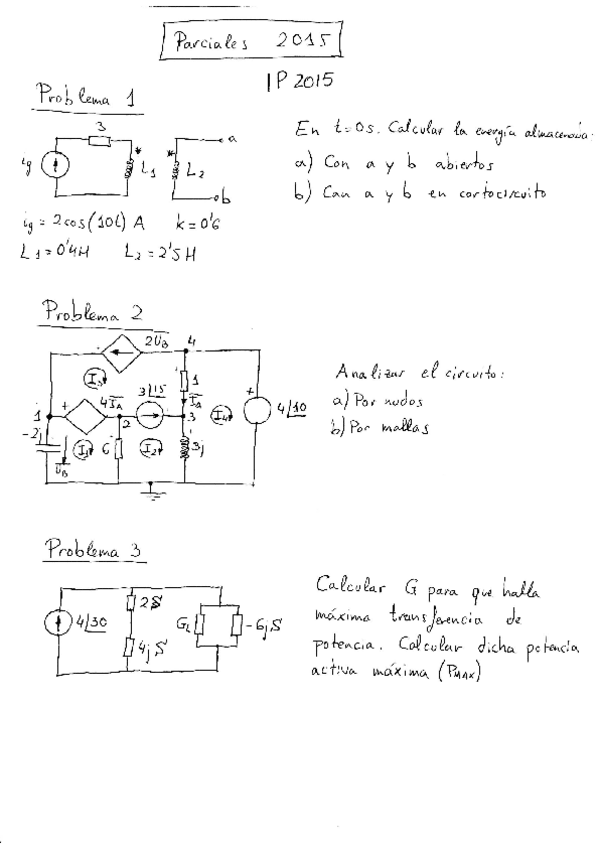 Parciales 2015
1P 2015
Problema 1
3
ig
L1
L2
a
b
En t=0s. Calcular la energía almacenada.
a) Con a y b abiertos
b) Con a y b en cortocircuito
ig = 2cos(10t) A   k=0'6
L1=0'4H   L2=2'5H
Problema 2
2UB
4
I3
1
IA
3|15
4IA
1
2
3
I4
4|10
-2j
UB
I1
6
I2
3j
Analizar el circuito:
a) Por nudos
b) Por mallas
Problema 3
4|30
2S
4jS
GL
-6jS
Calcular G para que halla
máxima transferencia de
potencia. Calcular dicha potencia
activa máxima (PMAX)